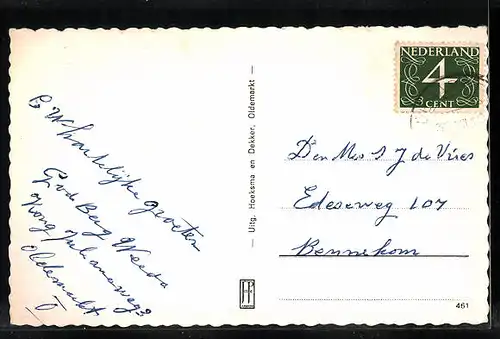 B. W. hartelijke groeten
Berg Weeda
Kon Julianaweg 3
Oldemarkt
Uitg. Hoeksma en Dekker, Oldemarkt
NEDERLAND
4
CENT
Den Mes S J de Vries
Edeseweg 107
Bennekom
461